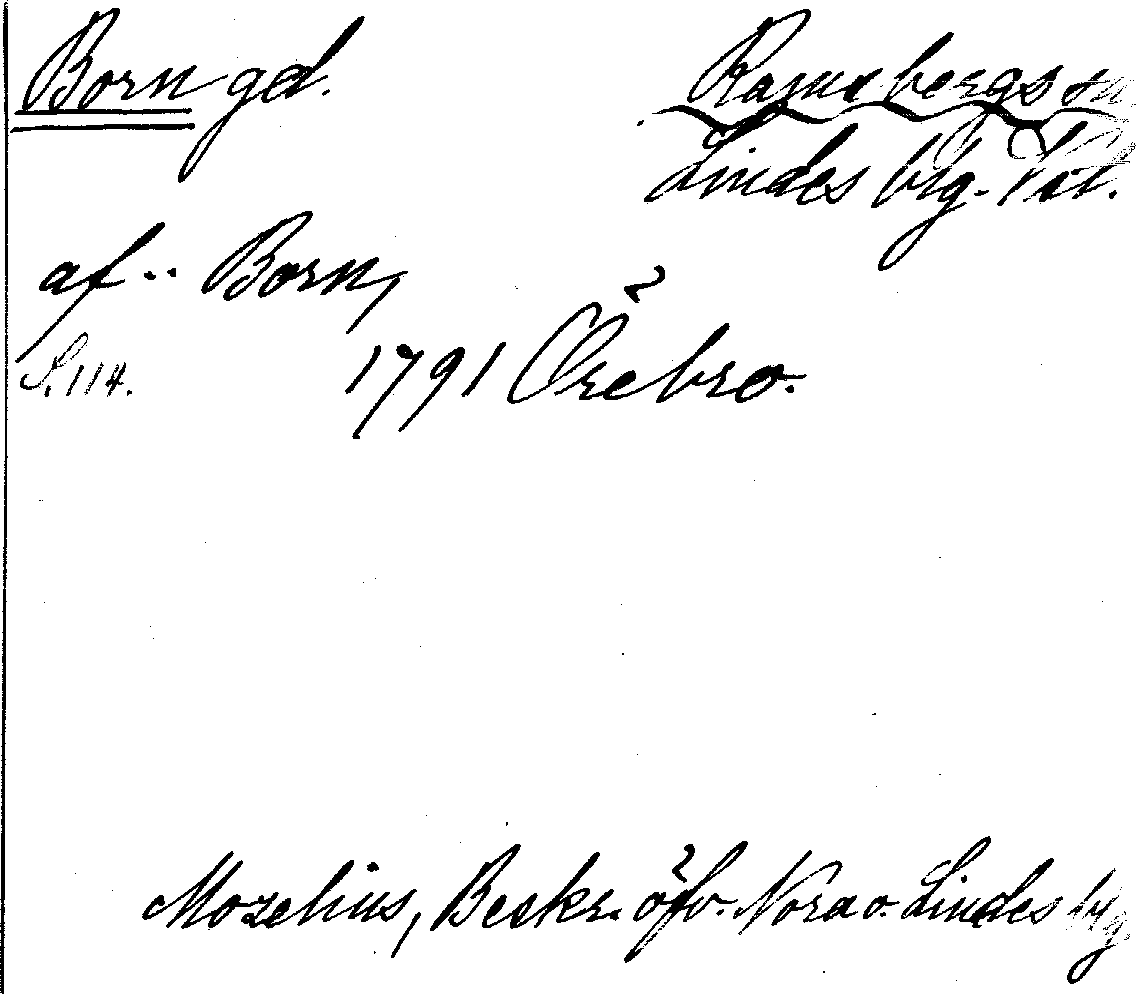 Born gd.
Ramsbergs sn
Lindes blg.
af .. Born,
S. 114.
1791 Örebro.
Mozelius, Beskr. öfv. Nora o. Lindes blg.